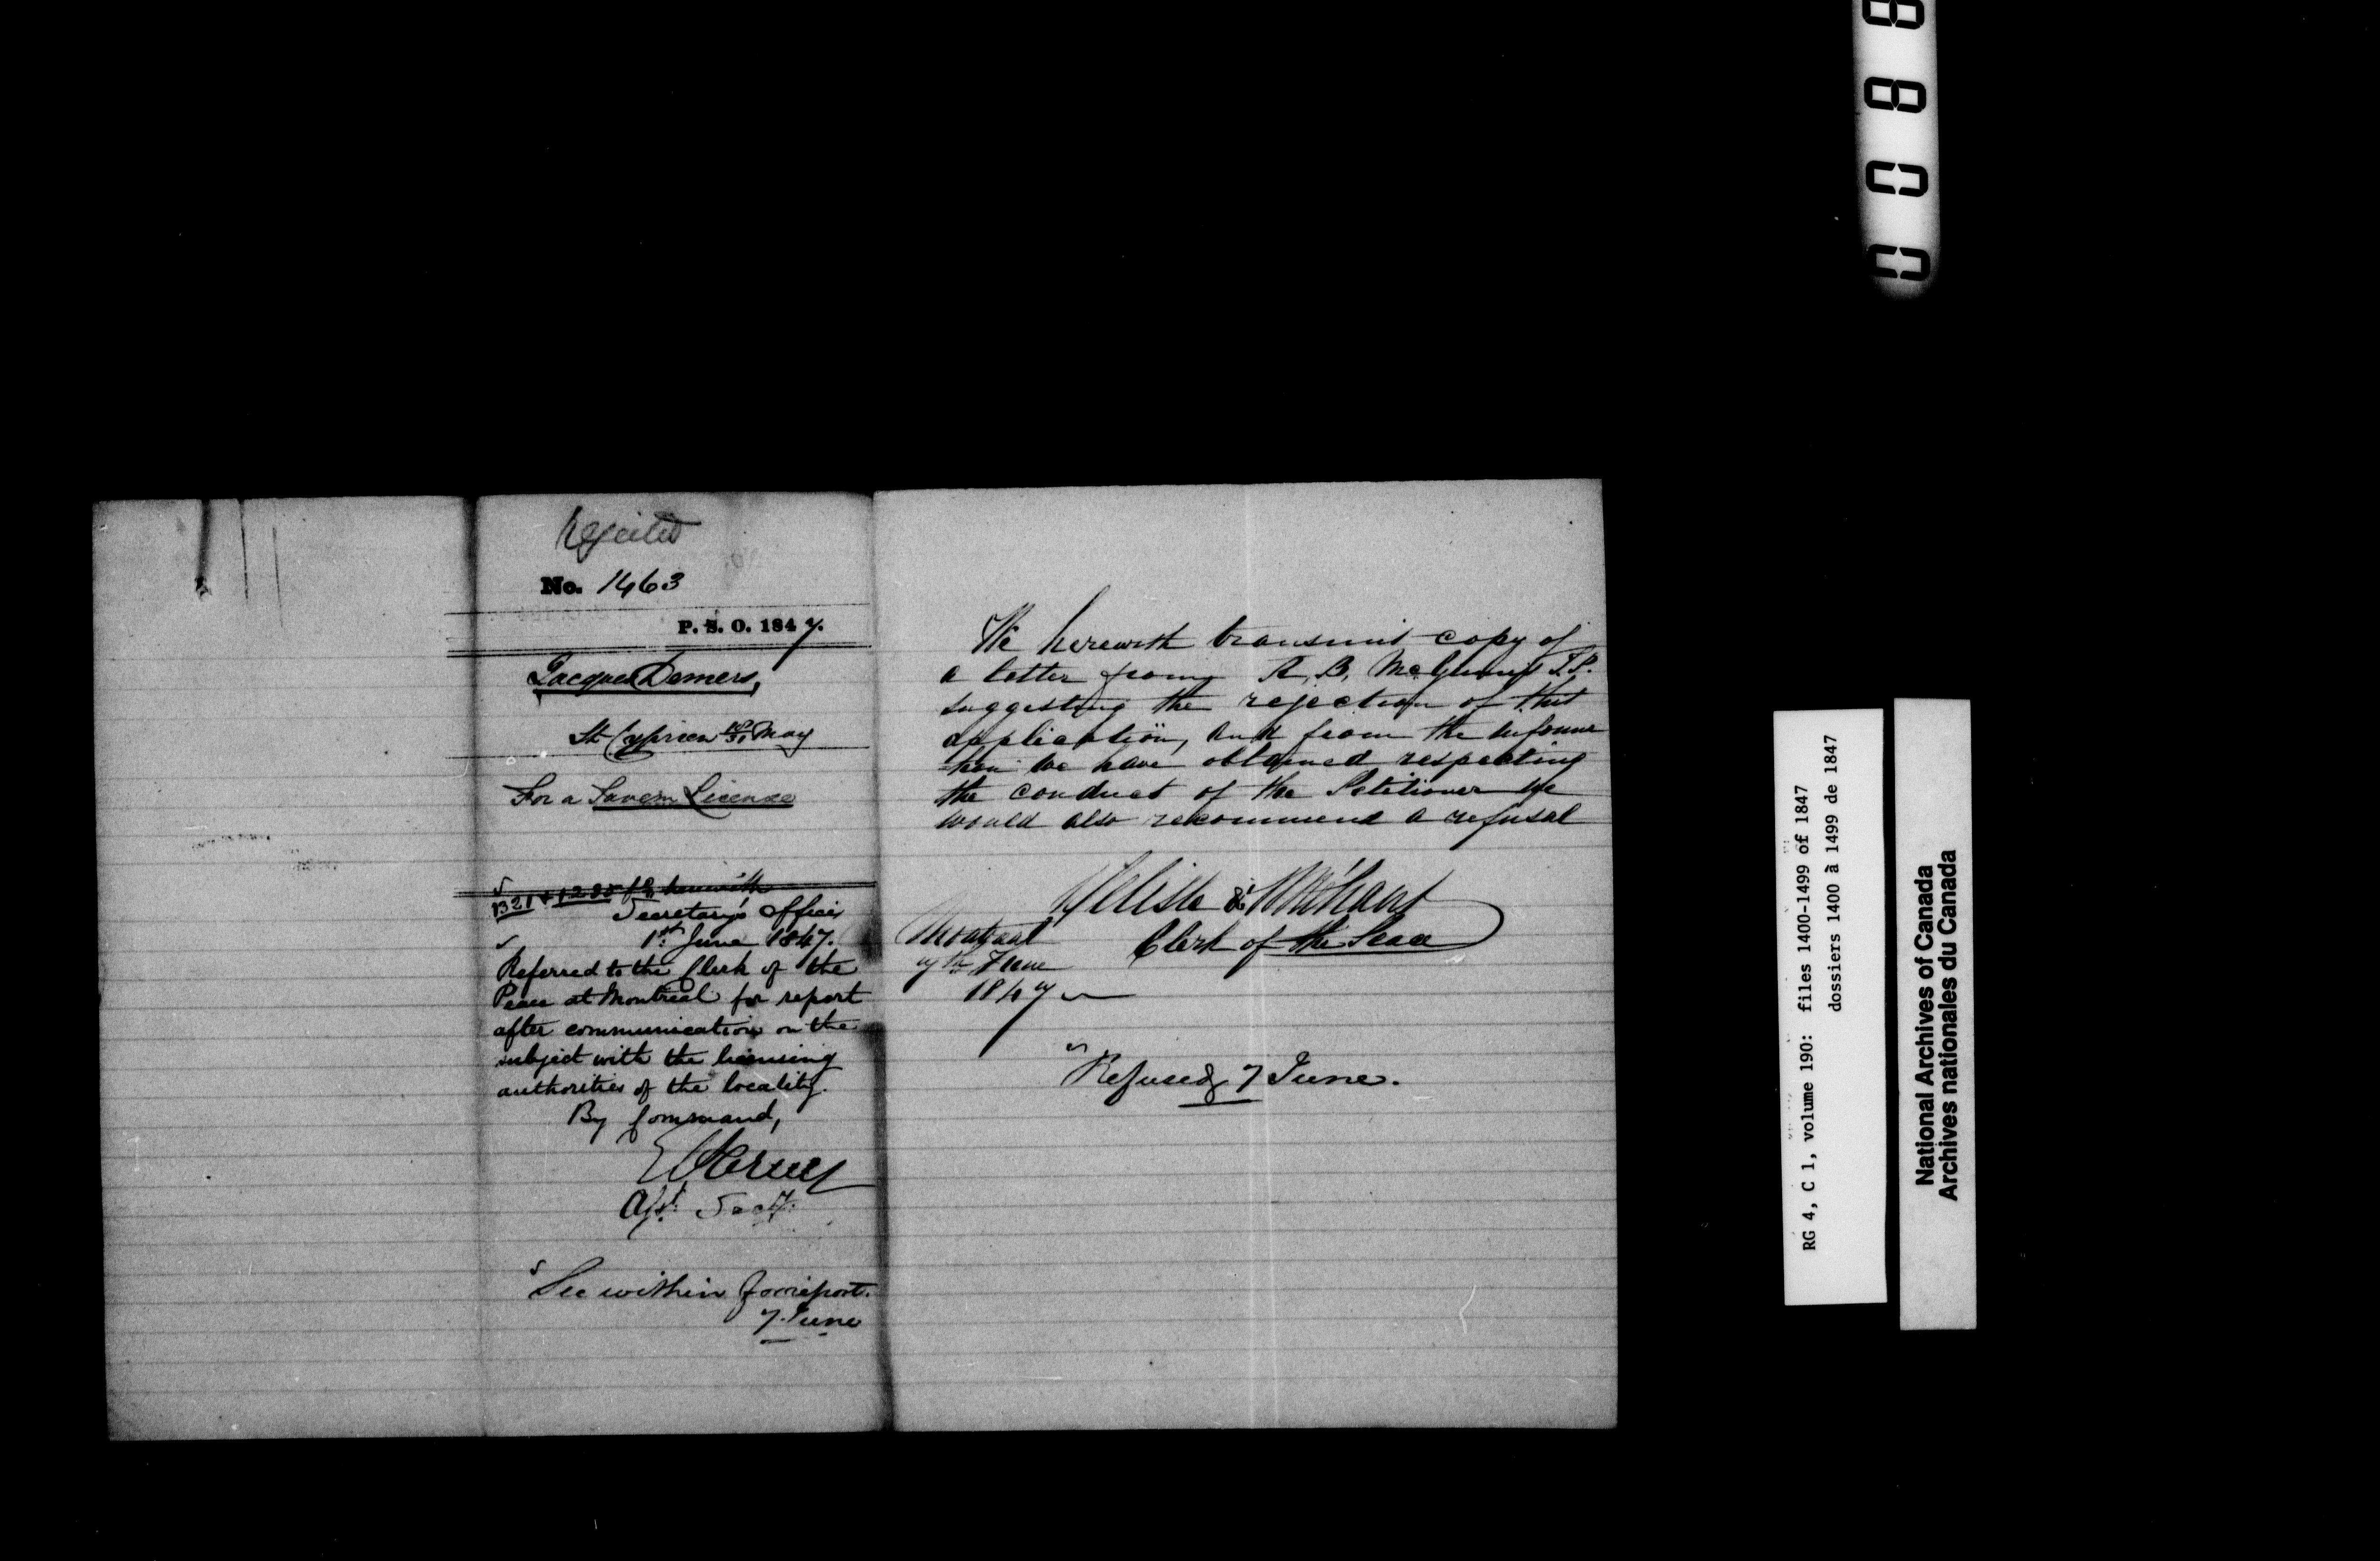 Rejected
No. 1463
P. S. O. 1847.
Jacques Demers,
St Cyprien 31 May
For a Tavern License
1321 + herewith
Secretary's Office
1st June 1847.
Referred to the Clerk of the
Peace at Montreal for report
after communication on the
subject with the licensing
authorities of the locality.
By Command,
Asst. Secy.
See within for report.
7. June
We herewith transmit copy of
a letter from R, B, McGinnis J.P.
suggesting the rejection of this
application, and from the informa
-tion we have obtained respecting
the conduct of the Petitioner we
would also recommend a refusal
Delisle &
Clerk of the Peace
Montreal
7th June
1847
Refused, 7 June.
0 0 8 8
RG 4, C 1, volume 190: files 1400-1499 of 1847
dossiers 1400 à 1499 de 1847
National Archives of Canada
Archives nationales du Canada